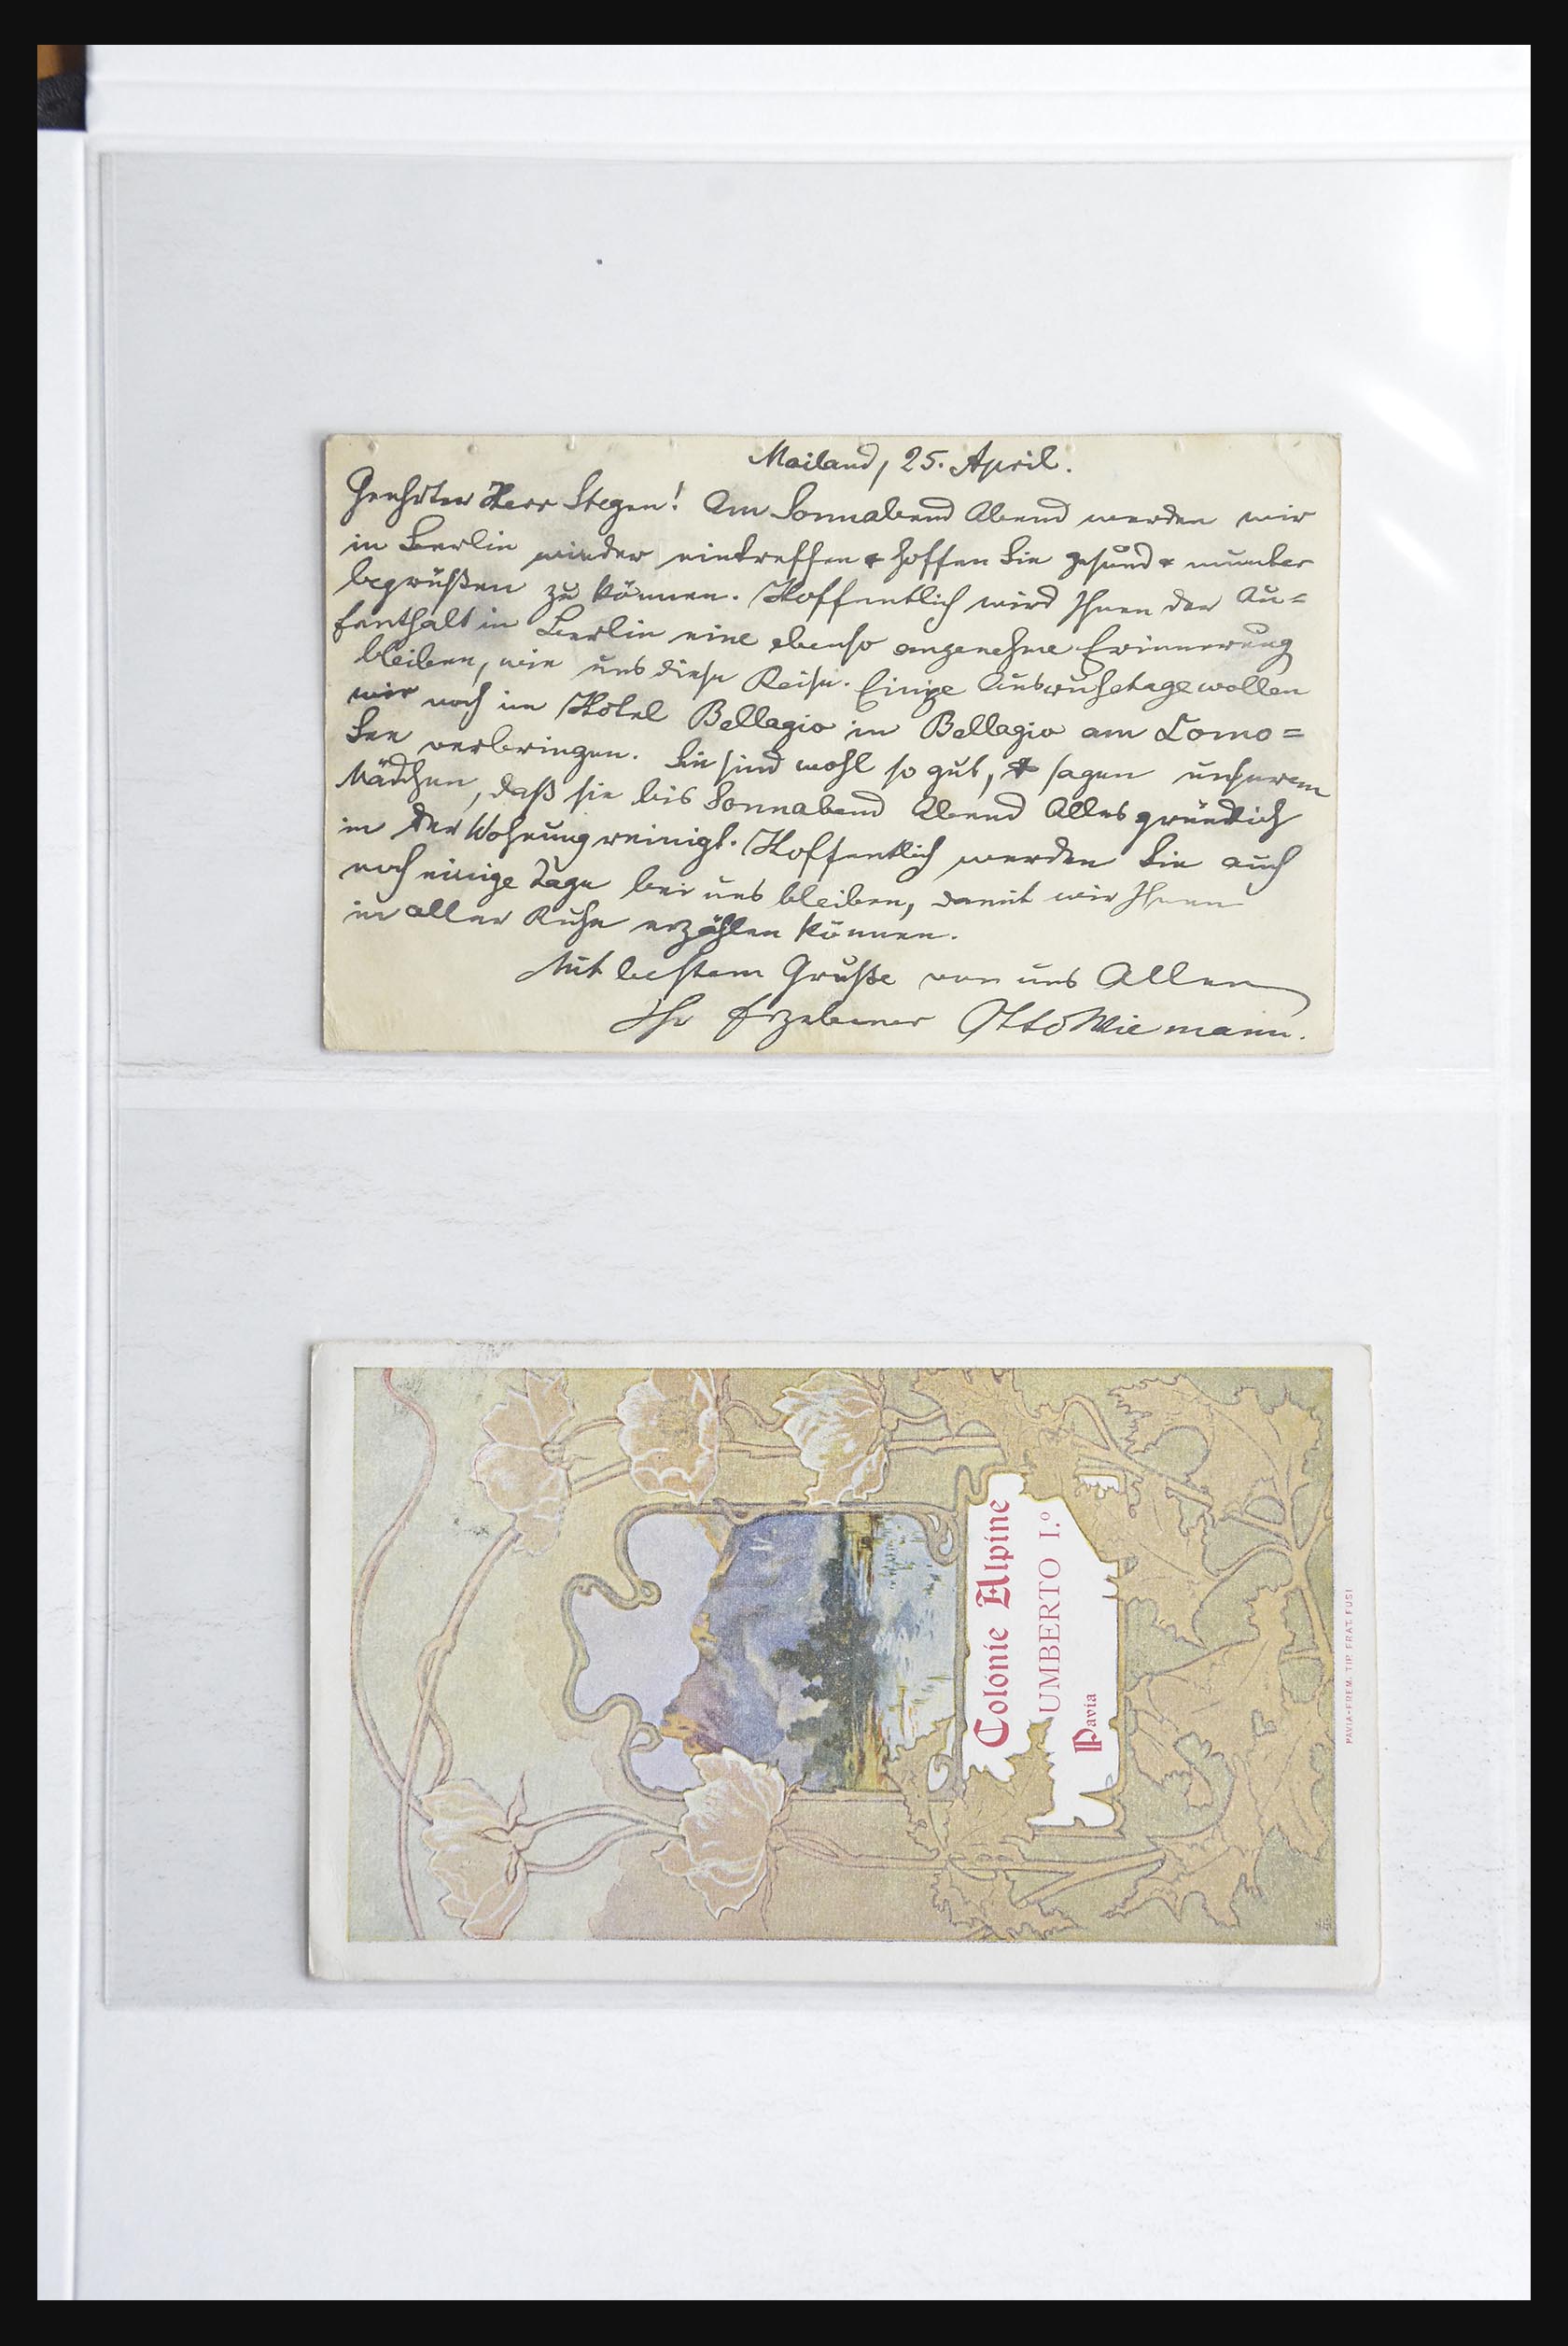 Mailand, 25. April.
Geehrter Herr Stegen! Am Sonnabend Abend werden wir
in Berlin wieder eintreffen & hoffen Sie gesund & munter
begrüßen zu können. Hoffentlich wird Ihnen der Au=
fenthalt in Berlin eine ebenso angenehme Erinnerung
bleiben, wie uns diese Reise. Einige Ausruhetage wollen
wir noch im Hôtel Bellagio in Bellagio am Como=
See verbringen. Sie sind wohl so gut, & sagen unserem
Mädchen, daß sie bis Sonnabend Abend Alles gründlich
in der Wohnung reinigt. Hoffentlich werden Sie auch
noch einige Tage bei uns bleiben, damit wir Ihnen
in aller Ruhe erzählen können.
Mit bestem Gruße von uns Allen
Ihr Ergebener Otto Wiemann.
Colonie Alpine
UMBERTO I.º
Pavia
PAVIA-PREM. TIP. FRAT. FUSI